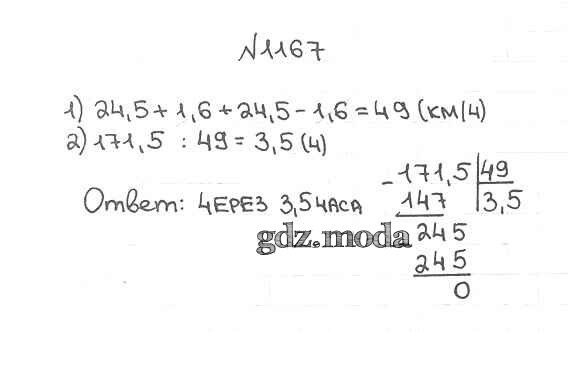 №1167
1) 24,5 + 1,6 + 24,5 - 1,6 = 49 (км/ч)
2) 171,5 : 49 = 3,5 (ч)
171,5 |49
- 147 |3,5
Ответ: ЧЕРЕЗ 3,5 ЧАСА
245
gdz.moda
245
0